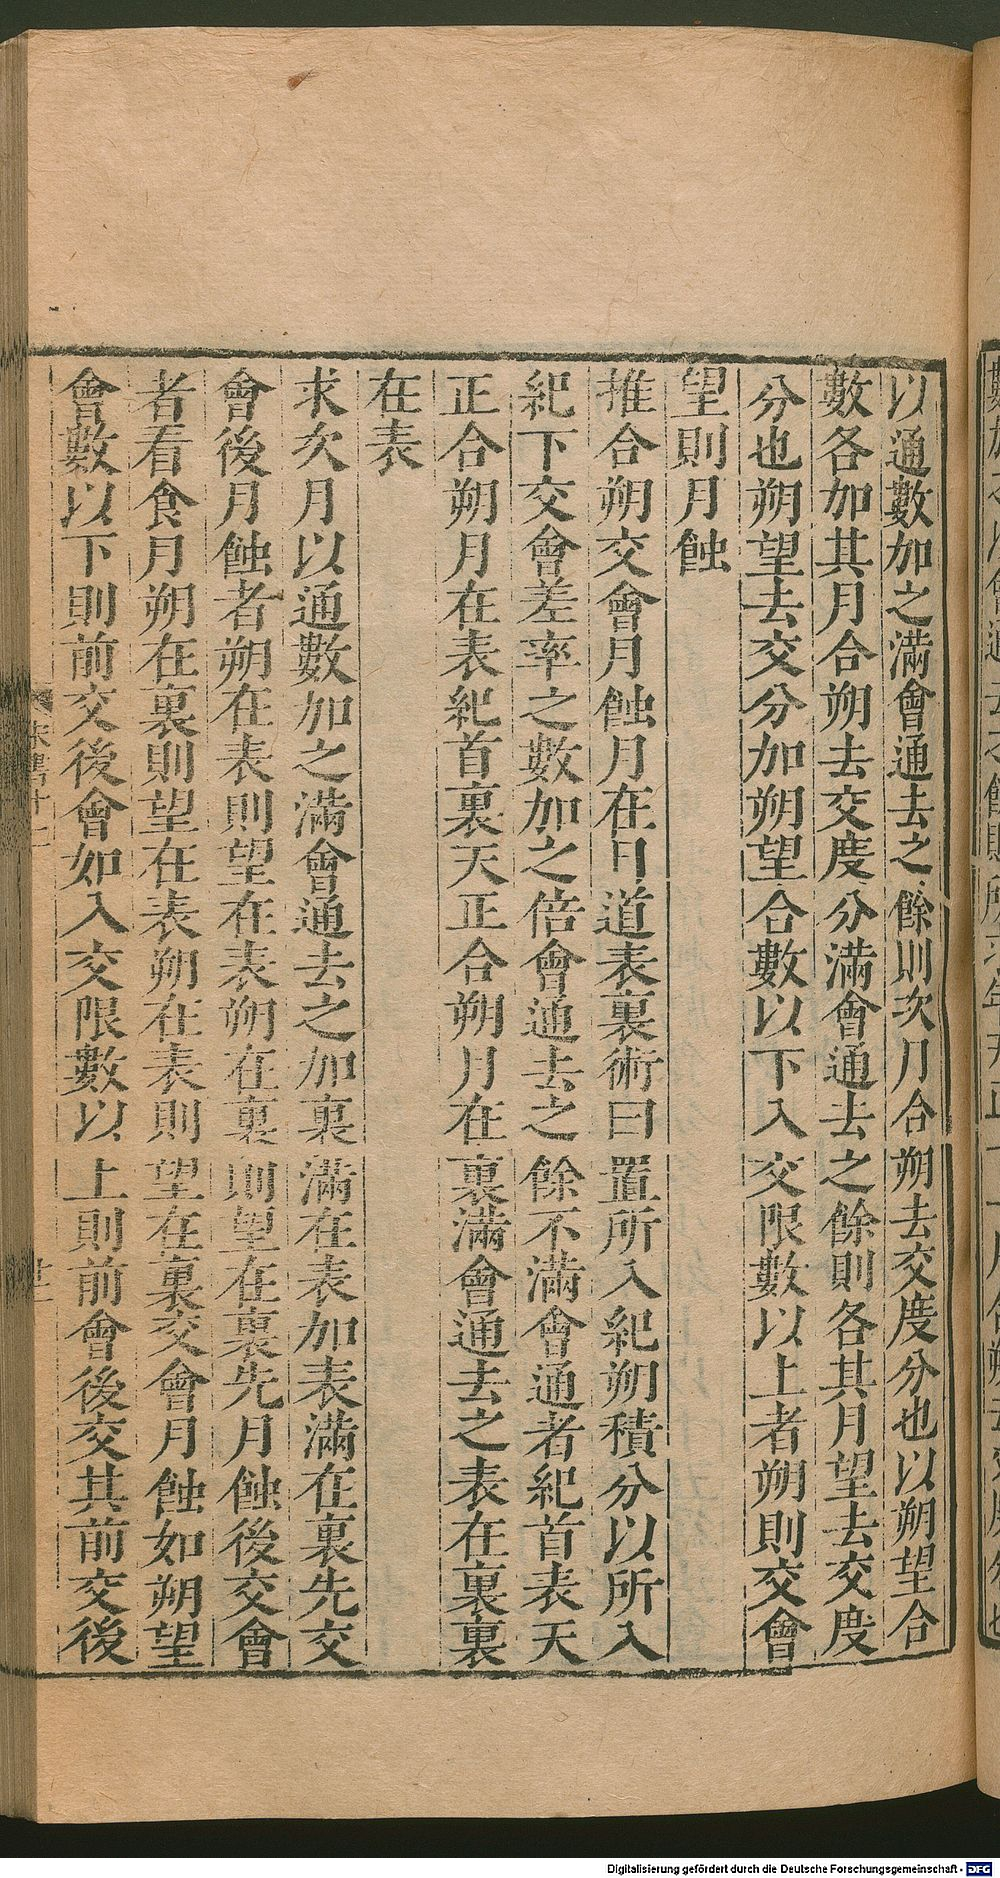 以通數加之滿會通去之餘則次月合朔去交度分也以朔望合
數各加其月合朔去交度分滿會通去之餘則各其月望去交度
分也朔望去交分加朔望合數以下入交限數以上者朔則交會
望則月蝕
推合朔交會月蝕月在日道表裏術曰置所入紀朔積分以所入
紀下交會差率之數加之倍會通去之餘不滿會通者紀首表天
正合朔月在表紀首裏天正合朔月在裏滿會通去之表在裏裏
在表
求次月以通數加之滿會通去之加裏滿在表加表滿在裏先交
會後月蝕者朔在表則望在表朔在裏則望在裏先月蝕後交會
者看食月朔在裏則望在表朔在表則望在裏交會月蝕如朔望
會數以下則前交後會如入交限數以上則前會後交其前交後
宋書十二
Digitalisierung gefördert durch die Deutsche Forschungsgemeinschaft - DFG